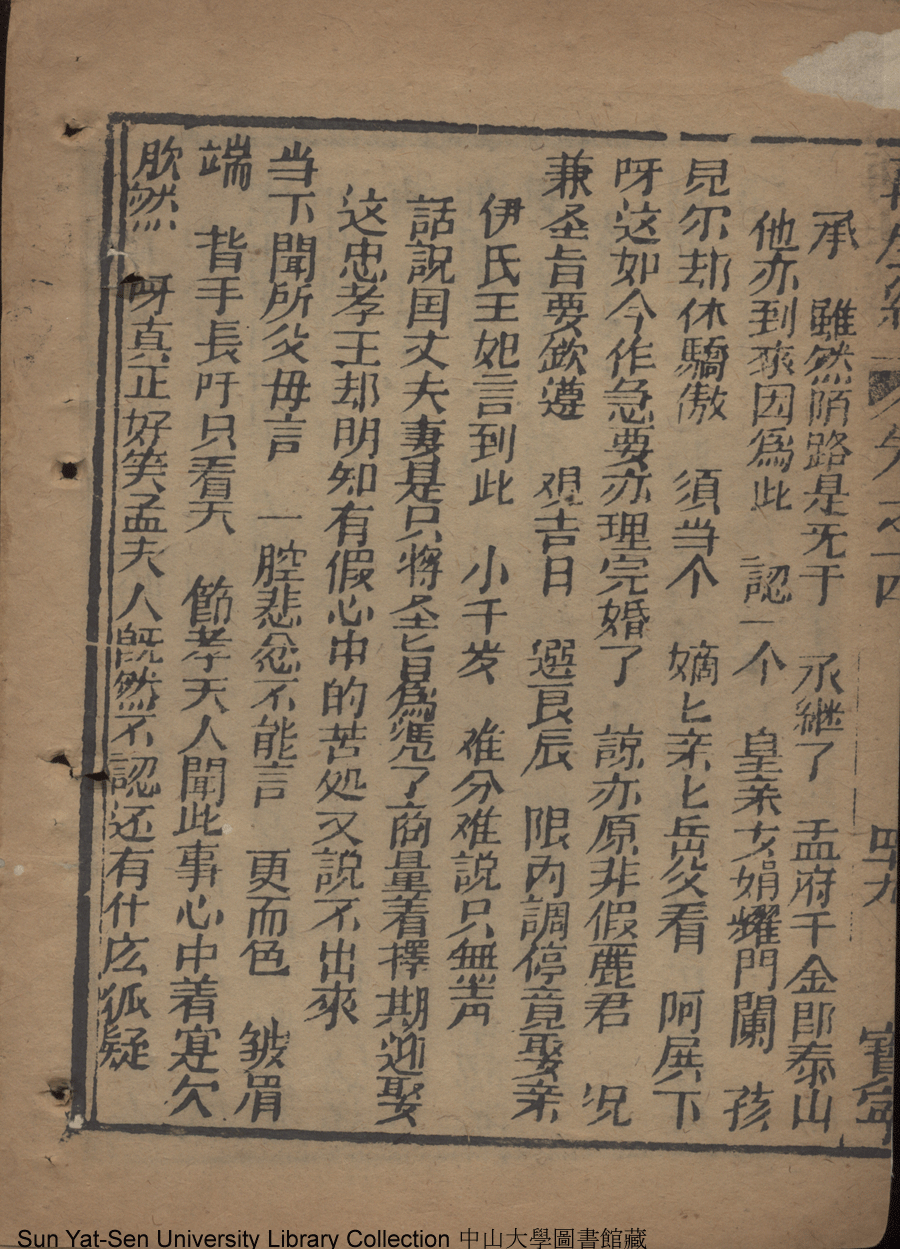 卷之十四 四九 寶寧
承 雖然陌路是无干 承継了 孟府千金即泰山
他亦到來因爲此 認一个 皇亲女娟耀門闌 孩
見尔却休驕傲 須当个 嫡匕亲匕岳父看 阿屏下
呀这如今作急要亦理完婚了 諒亦原非假麗君 况
兼圣旨要欽遵 覌吉日 選良辰 限内調停竟娶亲
伊氏王妃言到此 小千岁 难分难説只無言
話説国丈夫妻是只将圣旨爲凖了商量着擇期迎娶
这忠孝王却明知有假心中的苦処又説不出來
当下聞所父母言 一腔悲忿不能言 更而色 皱眉
端 背手長吁只看天 節孝夫人聞此事心中着寔欠
肷然 呀真正好笑孟夫人既然不認还有什庅狐疑
Sun Yat-Sen University Library Collection 中山大學圖書館藏